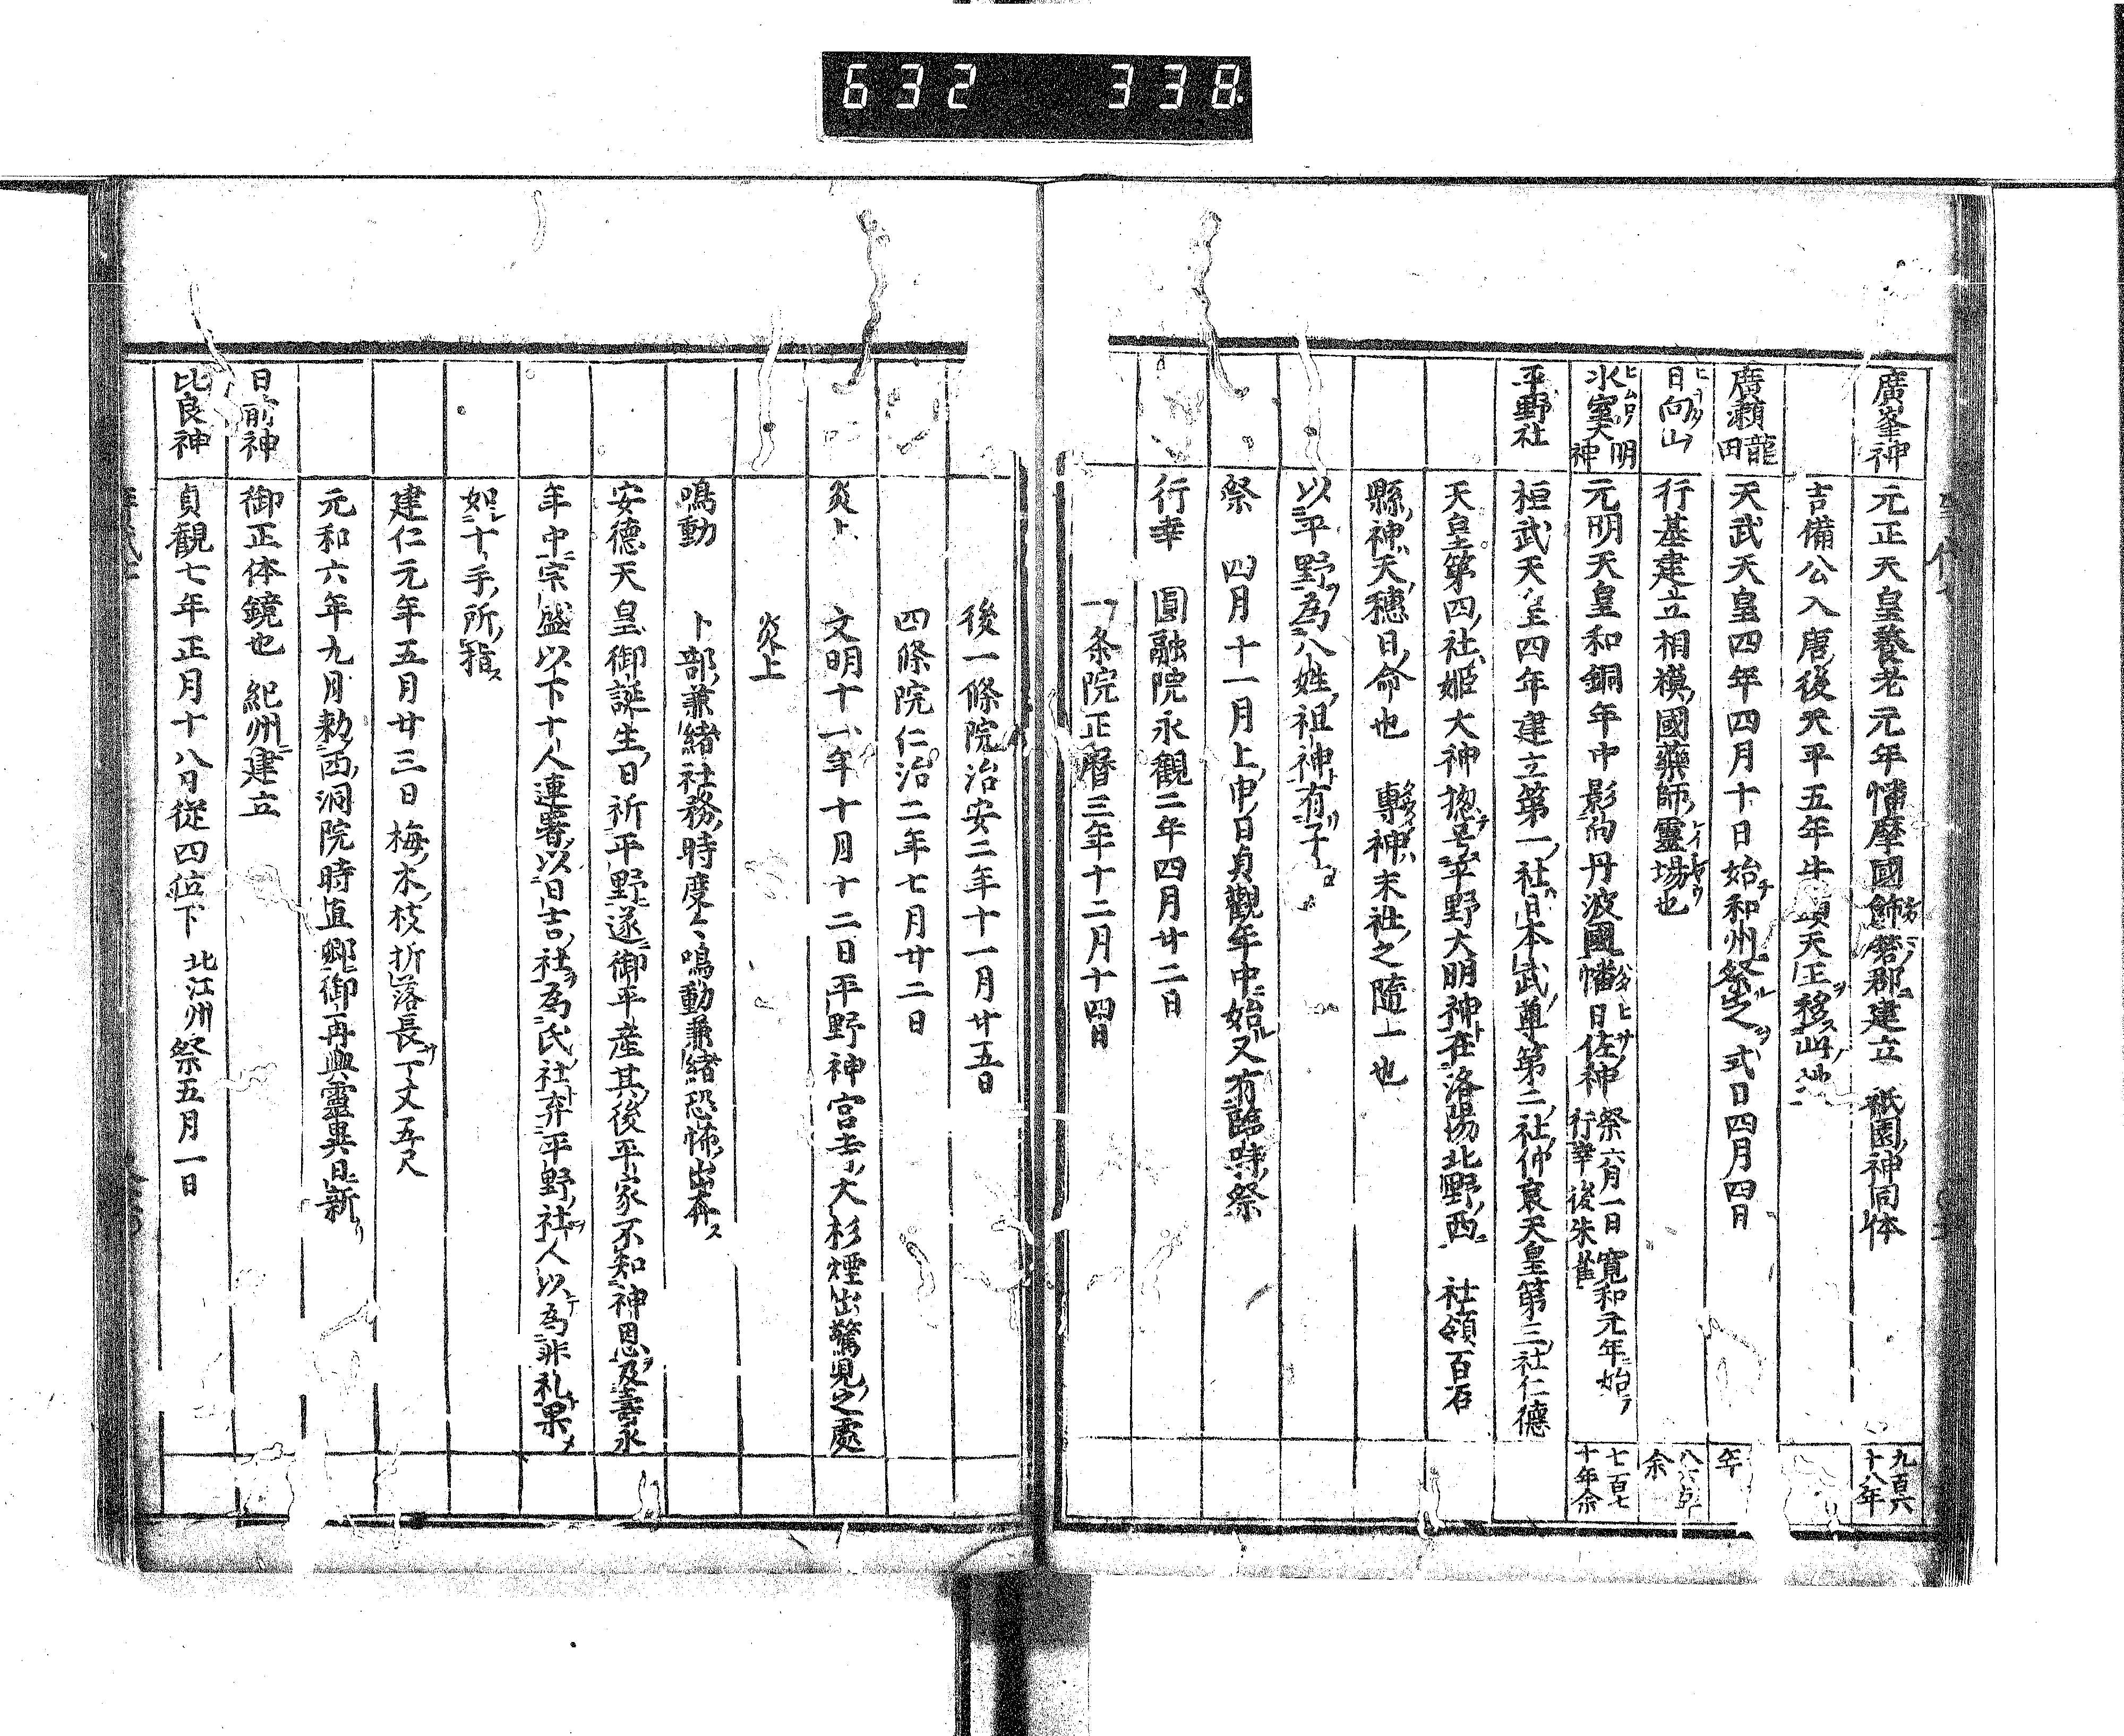 632 338
廣峯神 元正天皇養老元年幡摩國飾磨郡建立 祇園神同体 九百六十八年
吉備公入唐後天平五年牛頭天王移此地
廣瀬龍田 天武天皇四年四月十日始和州祭之 式日四月四日 年
日向山 行基建立相模國藥師靈場也 余
氷室大明神 元明天皇和銅年中影向丹波國幡日佐神 祭六月一日 寛和元年始行幸 後朱雀 七百七十年余
平野社 桓武天皇四年建立第一社日本武尊第二社仲哀天皇第三社仁德
天皇第四社姫大神惣号平野大明神在洛陽北野西 社領百石
縣神天穗日命也 專神末社之隨一也
以平野為八姓祖神有子
祭 四月十一月上申日貞觀年中始又有臨時祭
行幸 圓融院永觀二年四月廿二日
一条院正暦三年十二月十四日
後一條院治安二年十一月廿五日
四條院仁治二年七月廿二日
炎上 文明十八年十月十二日平野神宮寺大杉煙出驚見之處
炎上
鳴動 卜部兼緒社務時度々鳴動兼緒恐怖出奔
安德天皇御誕生日祈平野遂御平産其後平家不知神恩及壽永
年中宗盛以下十人連署以日吉社為氏社弃平野社人以為非礼果
如十手所指
建仁元年五月廿三日梅木枝折落長一丈五尺
元和六年九月勅西洞院時直卿御再興靈異日新
日前神 御正体鏡也 紀州建立
比良神 貞観七年正月十八日從四位下 北江州祭五月一日